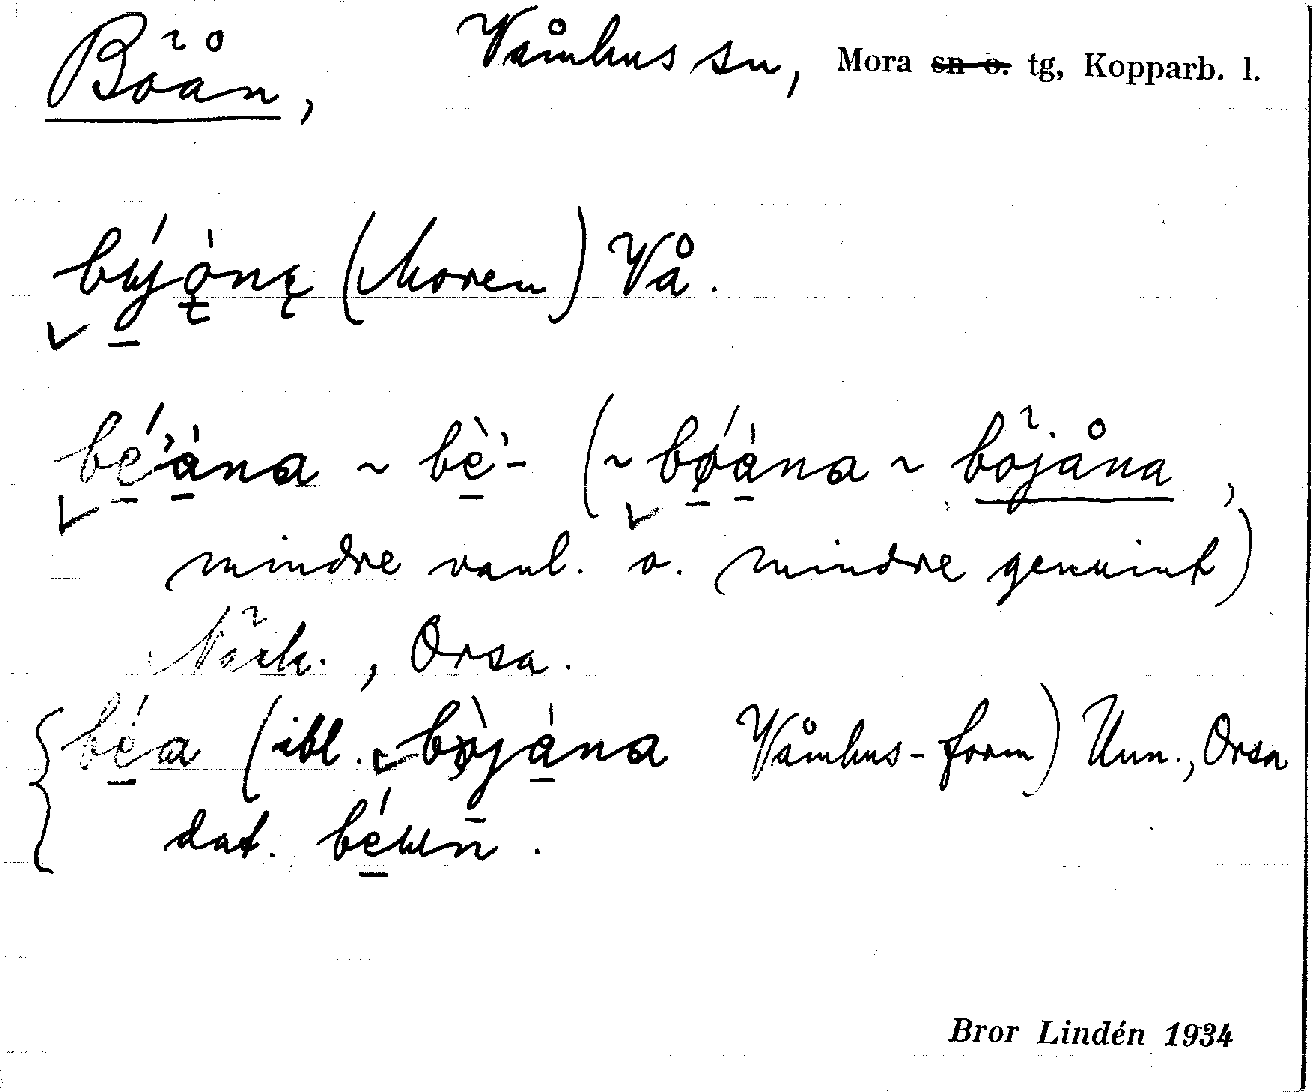 Böån, Våmhus sn, Mora sn o. tg, Kopparb. l.
(Moren) Vå.
béàna ~ bè- (~ bǿàna ~ böjåna,
mindre vanl. o. mindre genuint)
Näck., Orsa.
béa (ibl. bòjána Våmhus-form) Unn., Orsa
dat.
Bror Lindén 1934